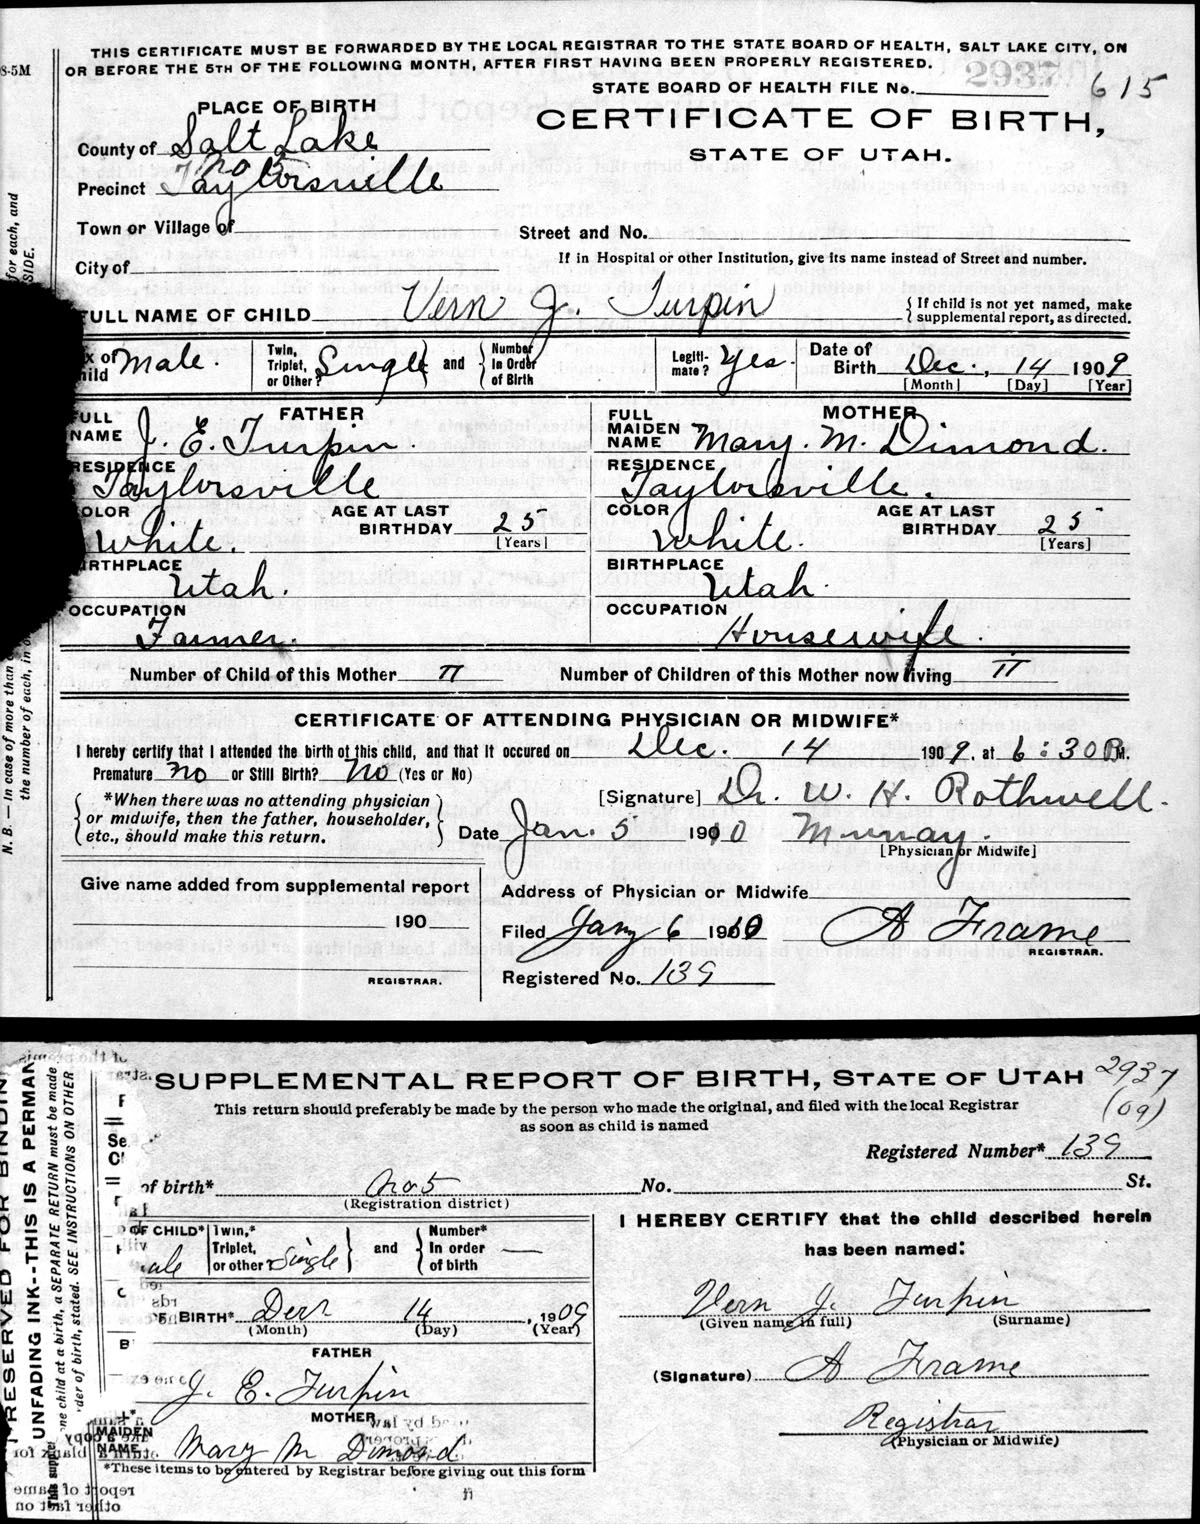 THIS CERTIFICATE MUST BE FORWARDED BY THE LOCAL REGISTRAR TO THE STATE BOARD OF HEALTH, SALT LAKE CITY, ON
OR BEFORE THE 5TH OF THE FOLLOWING MONTH, AFTER FIRST HAVING BEEN PROPERLY REGISTERED.
8-5M
2937
615
STATE BOARD OF HEALTH FILE No.
PLACE OF BIRTH
CERTIFICATE OF BIRTH,
STATE OF UTAH.
County of Salt Lake
No 5
Precinct Taylorsville
Town or Village of
Street and No.
City of
If in Hospital or other Institution, give its name instead of Street and number.
FULL NAME OF CHILD Vern J. Turpin
{If child is not yet named, make
supplemental report, as directed.
x of
hild Male.
Twin,
Triplet,
or Other? Single } and { Number
In Order
of Birth
Legiti-
mate? Yes.
Date of
Birth Dec., 14 1909
[Month] [Day] [Year]
FATHER
FULL
NAME J. E. Turpin.
RESIDENCE
Taylorsville
COLOR
White.
AGE AT LAST
BIRTHDAY 25
[Years]
BIRTHPLACE
Utah.
OCCUPATION
Farmer.
MOTHER
FULL
MAIDEN
NAME Mary. M. Dimond.
RESIDENCE
Taylorsville.
COLOR
White.
AGE AT LAST
BIRTHDAY 25
[Years]
BIRTHPLACE
Utah.
OCCUPATION
Housewife.
Number of Child of this Mother II
Number of Children of this Mother now living II
CERTIFICATE OF ATTENDING PHYSICIAN OR MIDWIFE*
I hereby certify that I attended the birth of this child, and that it occured on Dec. 14 1909, at 6:30 P.M.
Premature No or Still Birth? No (Yes or No)
{*When there was no attending physician
or midwife, then the father, householder,
etc., should make this return.}
[Signature] Dr. W. H. Rothwell.
Date Jan. 5 1910 Murray.
[Physician or Midwife]
Give name added from supplemental report
190
REGISTRAR.
Address of Physician or Midwife
Filed Jany 6 1910 A Frame
REGISTRAR.
Registered No. 139
N. B. — In case of more than
the number of each, in o
for each, and
SIDE.
SUPPLEMENTAL REPORT OF BIRTH, STATE OF UTAH
2937
(09)
This return should preferably be made by the person who made the original, and filed with the local Registrar
as soon as child is named
Registered Number* 139
of birth* No 5 No. St.
(Registration district)
OF CHILD*
ale
Twin,*
Triplet,
or other Single } and { Number*
In order
of birth —
BIRTH* Decr 14, 1909
(Month) (Day) (Year)
FATHER
J. E. Turpin
MOTHER
MAIDEN
NAME Mary M Dimond
*These items to be entered by Registrar before giving out this form
I HEREBY CERTIFY that the child described herein
has been named:
Vern J. Turpin
(Given name in full) (Surname)
(Signature) A Frame
Registrar
(Physician or Midwife)
RESERVED FOR BINDIN
UNFADING INK--THIS IS A PERMAN
ne child at a birth, a SEPARATE RETURN must be made
der of birth, stated. SEE INSTRUCTIONS ON OTHER